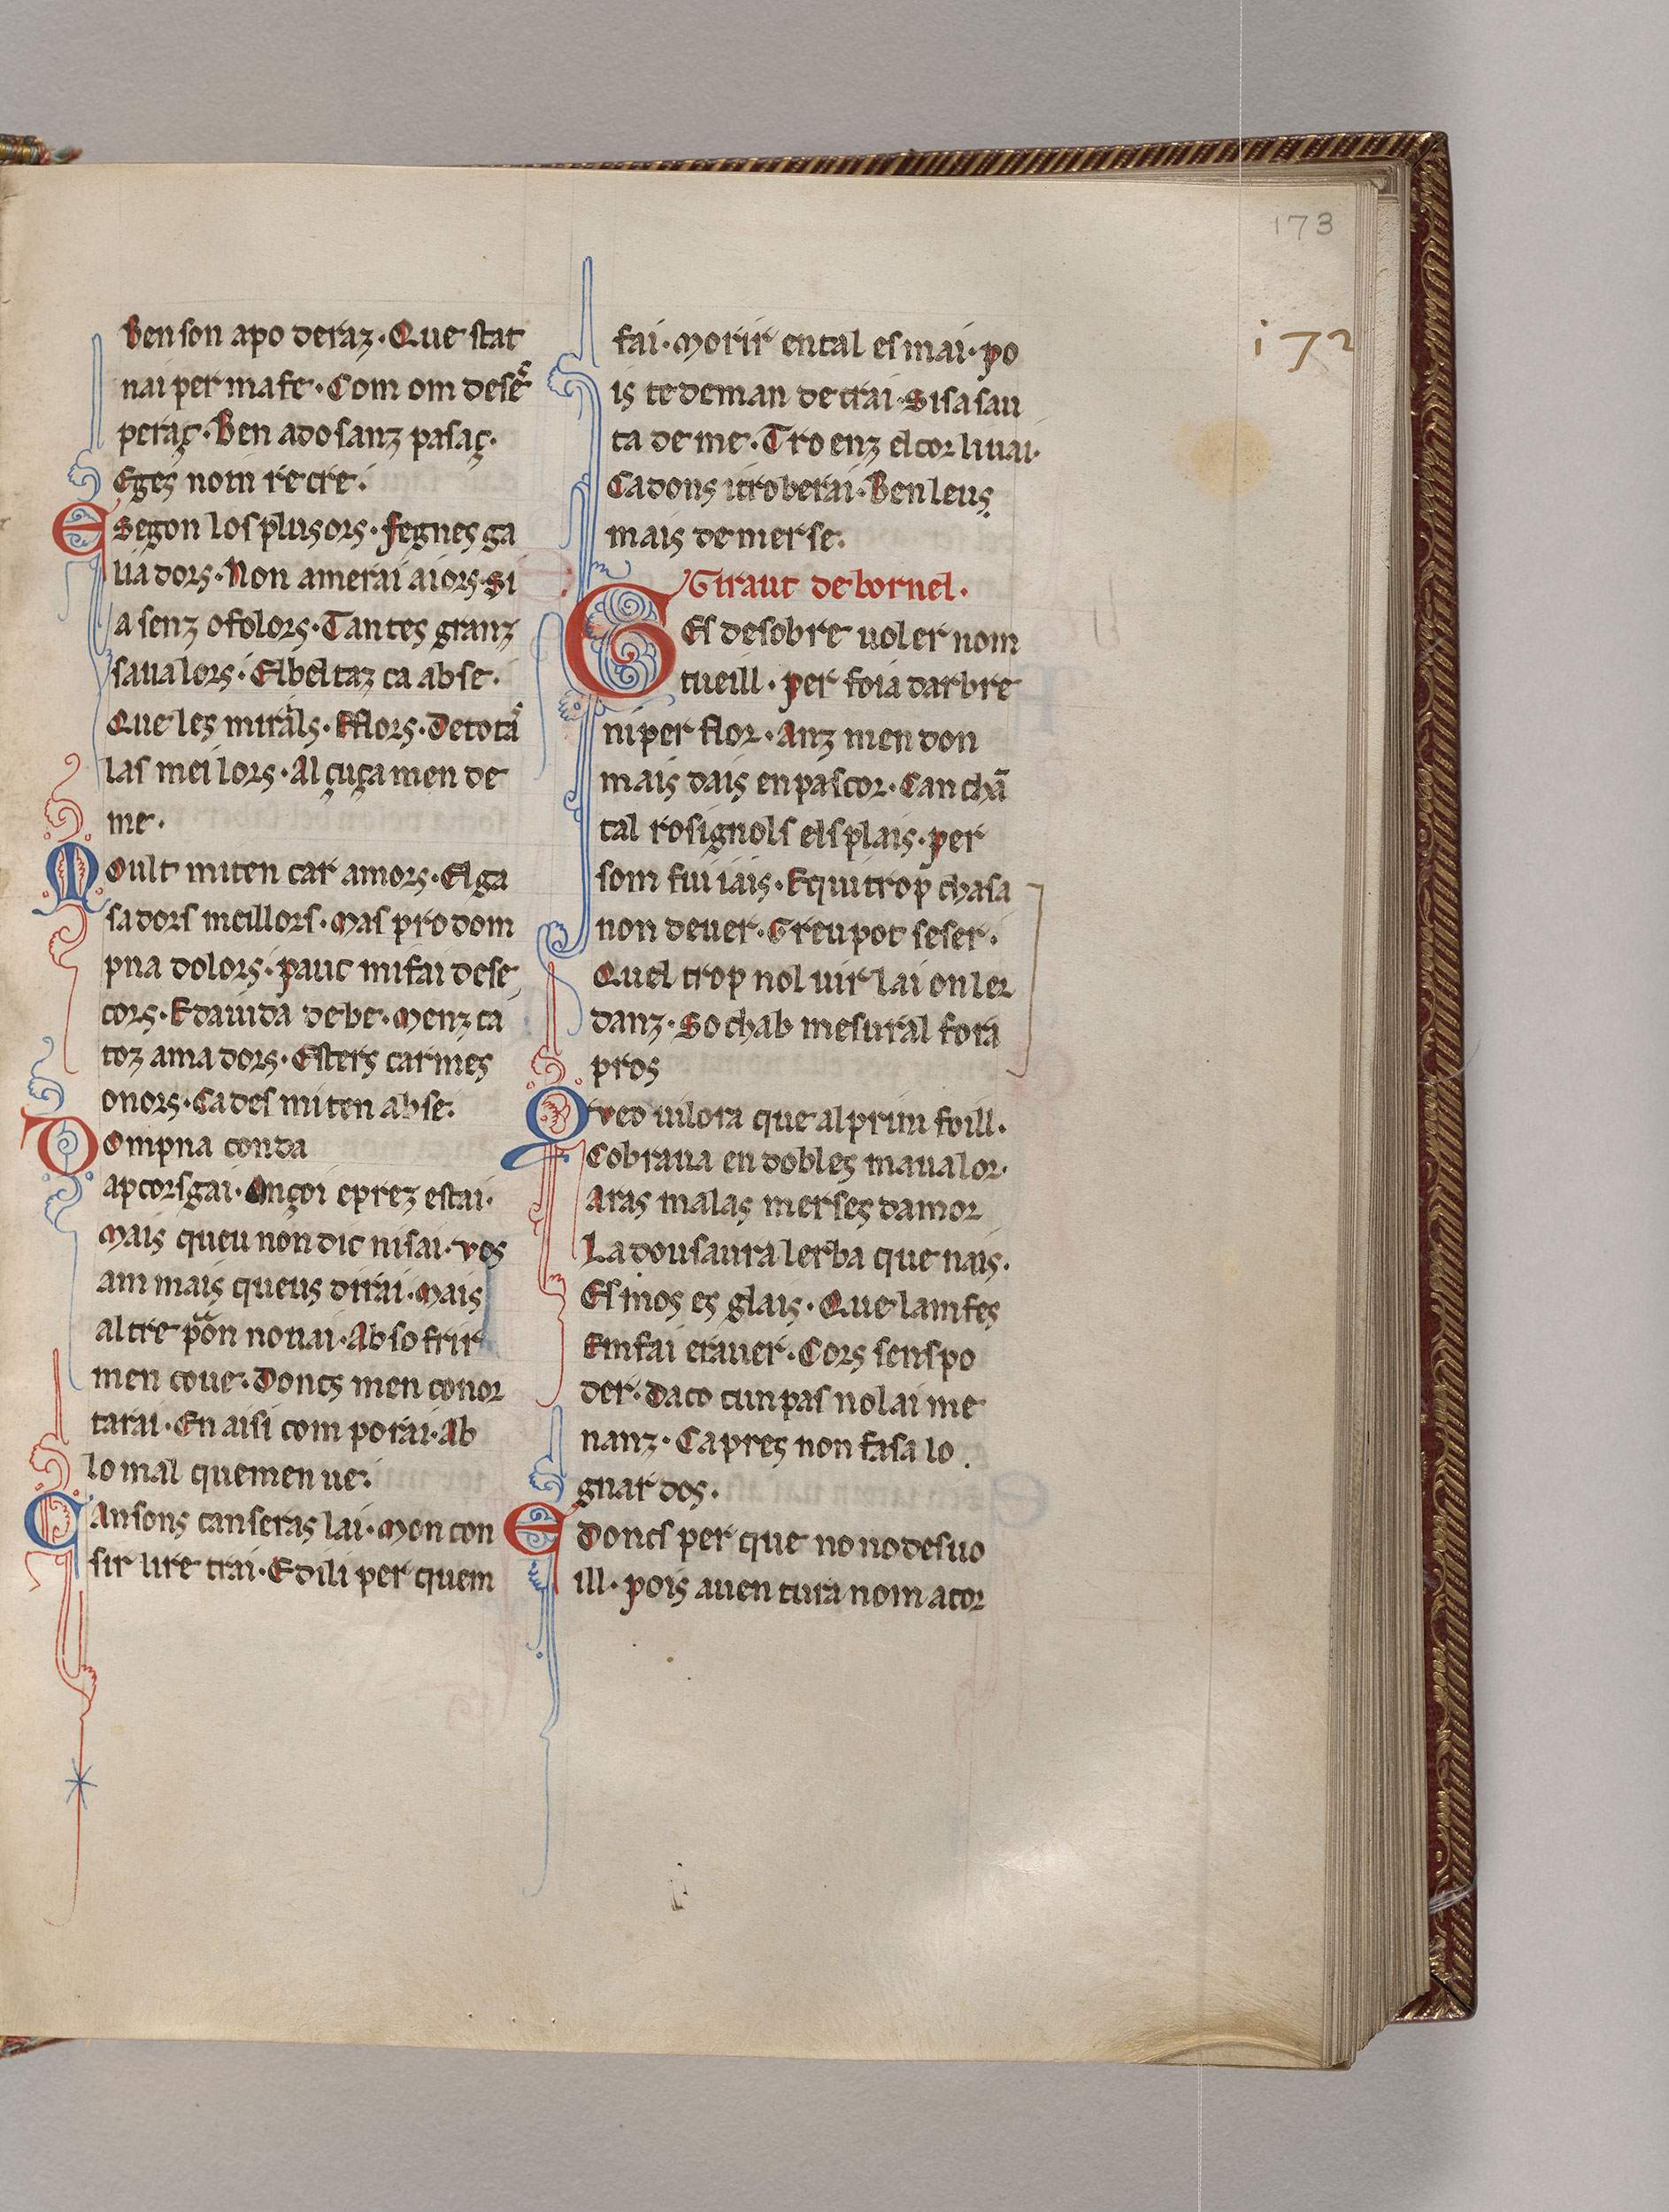 173
i72
Ben son apo deraz · Que stat
nai per ma fe · Com om desẽˢ
peraç · Ben ado sanz pasaç ·
Eges nom re cre ·
E Segon los plusors · fegnes ga
lia dors · Non amerai aiors · Si
a senz o folors · Tantes granz
saua lors · El bel taz ca ab se ·
Que les mirals · E flors · De totaˢ
las mei lors · Al çuça men de
me ·
Moult miten car amors · El ga
sadors meillors · Mas pro dom
pna dolors · pauc mi fai dese
cors · E dauida de be · Menz ca
toz ama dors · Esters car mes
onors · Ca des mi ten ab se ·
Dompna conda
ap cors gai · Onçoi e prez estai ·
Mais queu non dic ni sai · vos
am mais queus dirai · Mais
altre pōn no nai · Ab so frir
men coue · Doncs men conor
tarai · En aisi com porai · Ab
lo mal quemen ue ·
Cansons can seras lai · Mon con
sir li re trai · E di li per quem
fai · Morir en tal es mai · po
is te deman de trai · Si sa sau
ta de me · Tro enz el cor li uai ·
Ca dons i troberai · Ben leus
mais de merse ·
Giraut de bornel ·
Ges de sobre uoler nom
tueill · per foia darbre
ni per flor · Anz men don
mais dais en pascor · Can chã
tal rosignols els plais · per
som fui iais · E qui trop chasa
non deuer · Greu pot seser ·
Quel trop nol uir lai on ler
danz · So chab mesural fora
pros
Queo uilora que al prim foill ·
Cobraua en dobles ma ualor ·
Aras malas merses damor
La dousaura lerba que nais ·
Es mos es glais · Que lam fes
Em fai erauer · Cors sens po
der · Daco tun pas nol ai me
nanz · Capres non fasa lo
gnar dos ·
E Doncs per que no no desuo
ill · pois auen tura nom a cor